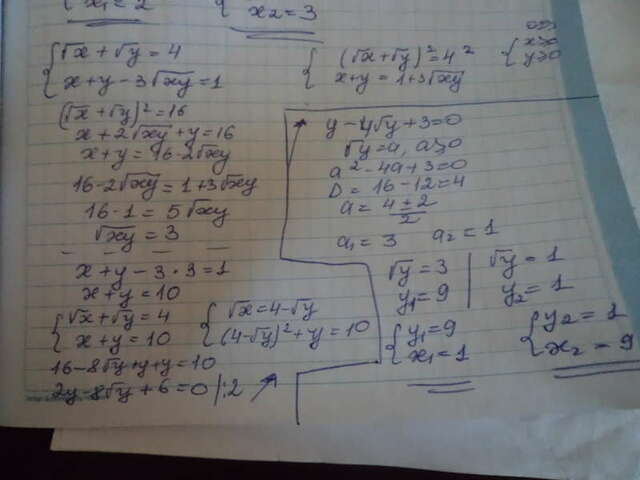 x₁ = 2
x₂ = 3
{ √x + √y = 4
x + y - 3√xy = 1
(√x + √y)² = 16
x + 2√xy + y = 16
x + y = 16 - 2√xy
16 - 2√xy = 1 + 3√xy
16 - 1 = 5√xy
√xy = 3
x + y - 3 · 3 = 1
x + y = 10
{ √x + √y = 4
x + y = 10
{ √x = 4 - √y
(4 - √y)² + y = 10
16 - 8√y + y + y = 10
2y - 8√y + 6 = 0 |:2
{ (√x + √y)² = 4²
x + y = 1 + 3√xy
{ x≥0
y≥0
y - 4√y + 3 = 0
√y = a, a≥0
a² - 4a + 3 = 0
D = 16 - 12 = 4
a = (4 ± 2)/2
a₁ = 3 a₂ = 1
√y = 3 | √y = 1
y₁ = 9 | y₂ = 1
{ y₁ = 9
x₁ = 1
{ y₂ = 1
x₂ = 9